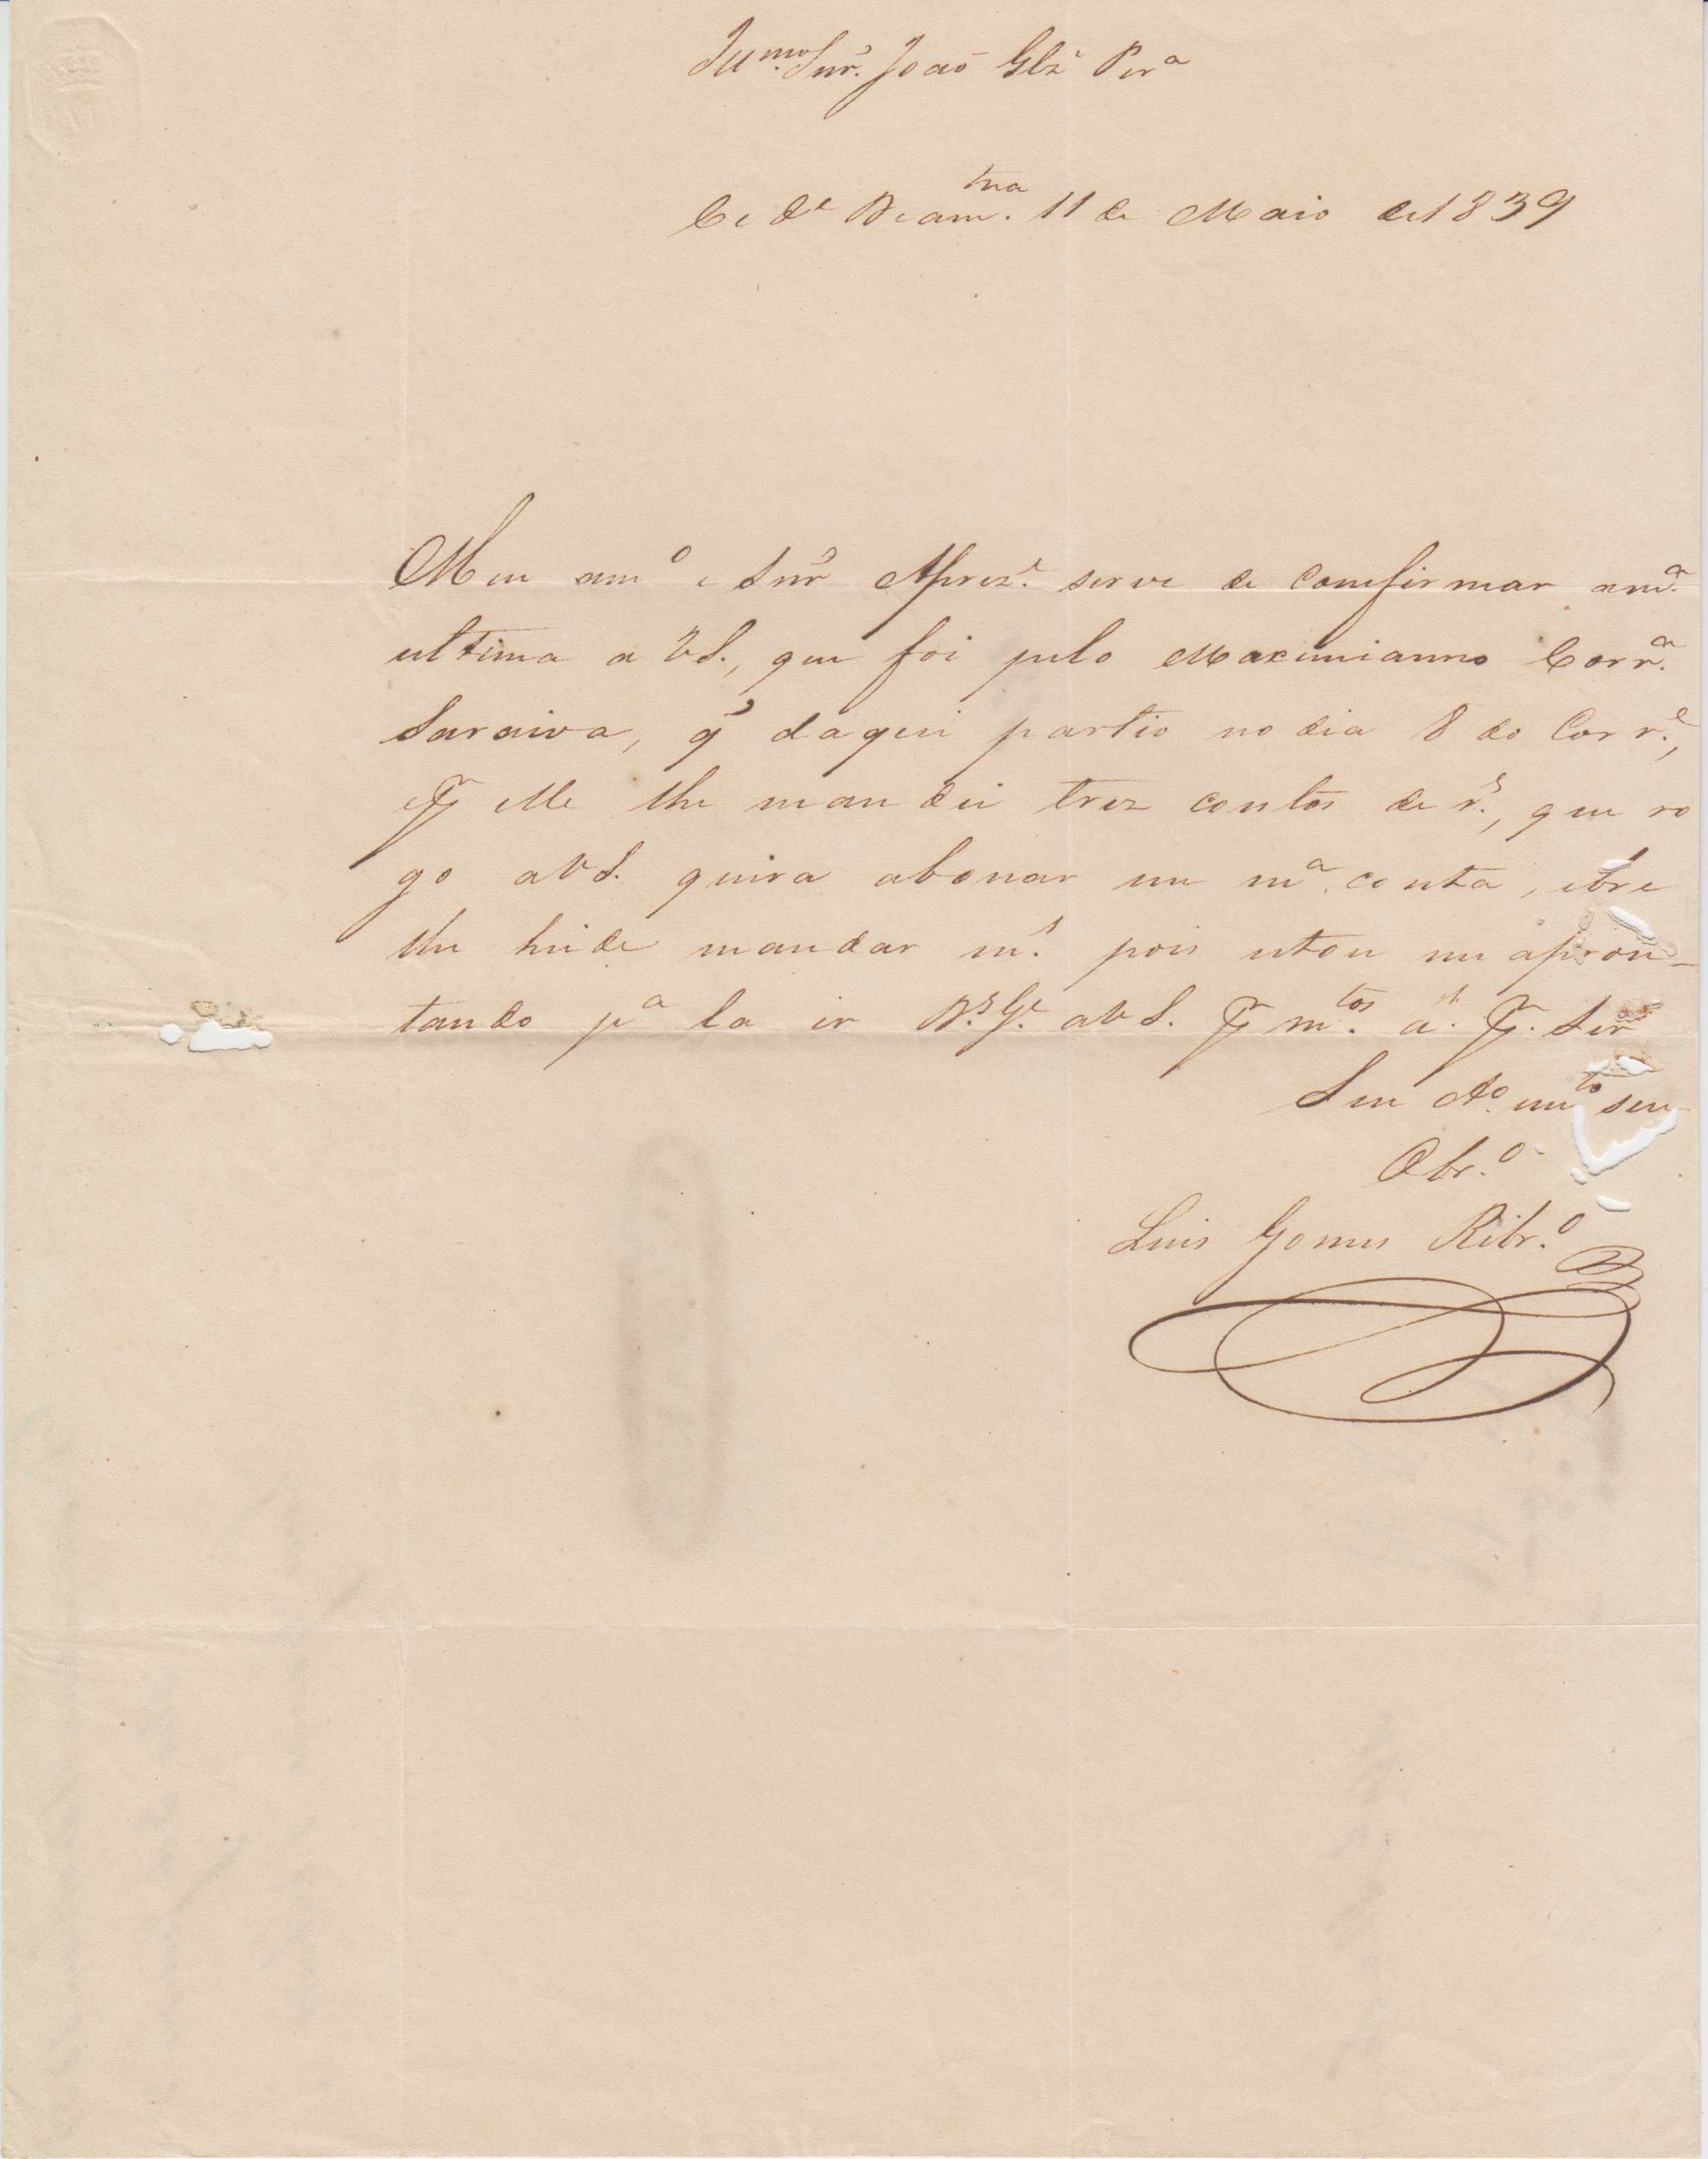 Ill.mo Snr. João Glz' Per.a
Ce. de Deam.tna 11 de Maio de 1839
Meu am.o e Snr' Aprez.e serve de comfirmar am.a
ultima a VS., que foi pelo Maximianno Corr.a
Saraiva, q' daqui partio no dia 8 do Corr.e,
e P elle lhe mandei trez contos de r.s, que ro
go aVS. queira abonar em m.a conta, ebre
lhe heide mandar m.s pois estou me apron-
tando p.a la ir D.s G.e aVS. P m.tos a.s P. Ser
Seu A.o m.to seu
Obr.o
Luis Gomes Ribr.o